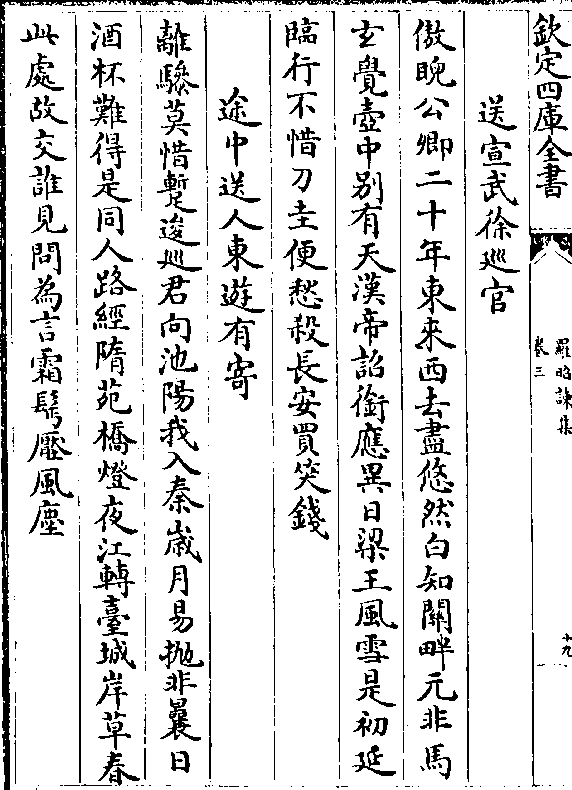 欽定四庫全書
羅昭諫集
卷三
十九
送宣武徐巡官
傲睨公卿二十年東来西去盡悠然白知關畔元非馬
玄覺壺中别有天漢帝詔銜應異日梁王風雪是初延
臨行不惜刀圭便愁殺長安買笑錢
途中送人東遊有寄
離驂莫惜蹔逡巡君向池陽我入秦歲月易抛非曩日
酒杯難得是同人路經隋苑橋燈夜江轉臺城岸草春
此處故交誰見問為言霜鬢壓風塵